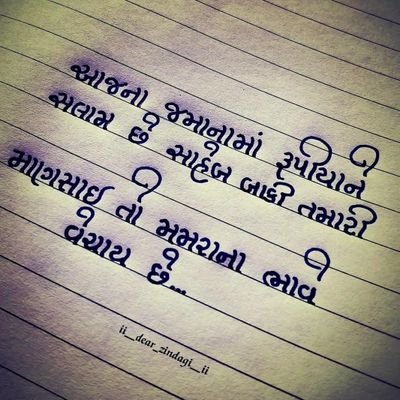 આજના જમાનામાં રૂપીયાને
સલામ છે સાહેબ બાકી તમારી
માણસાઇ તો મમરાના ભાવે
વેચાય છે...
ii_dear_zindagi_ii